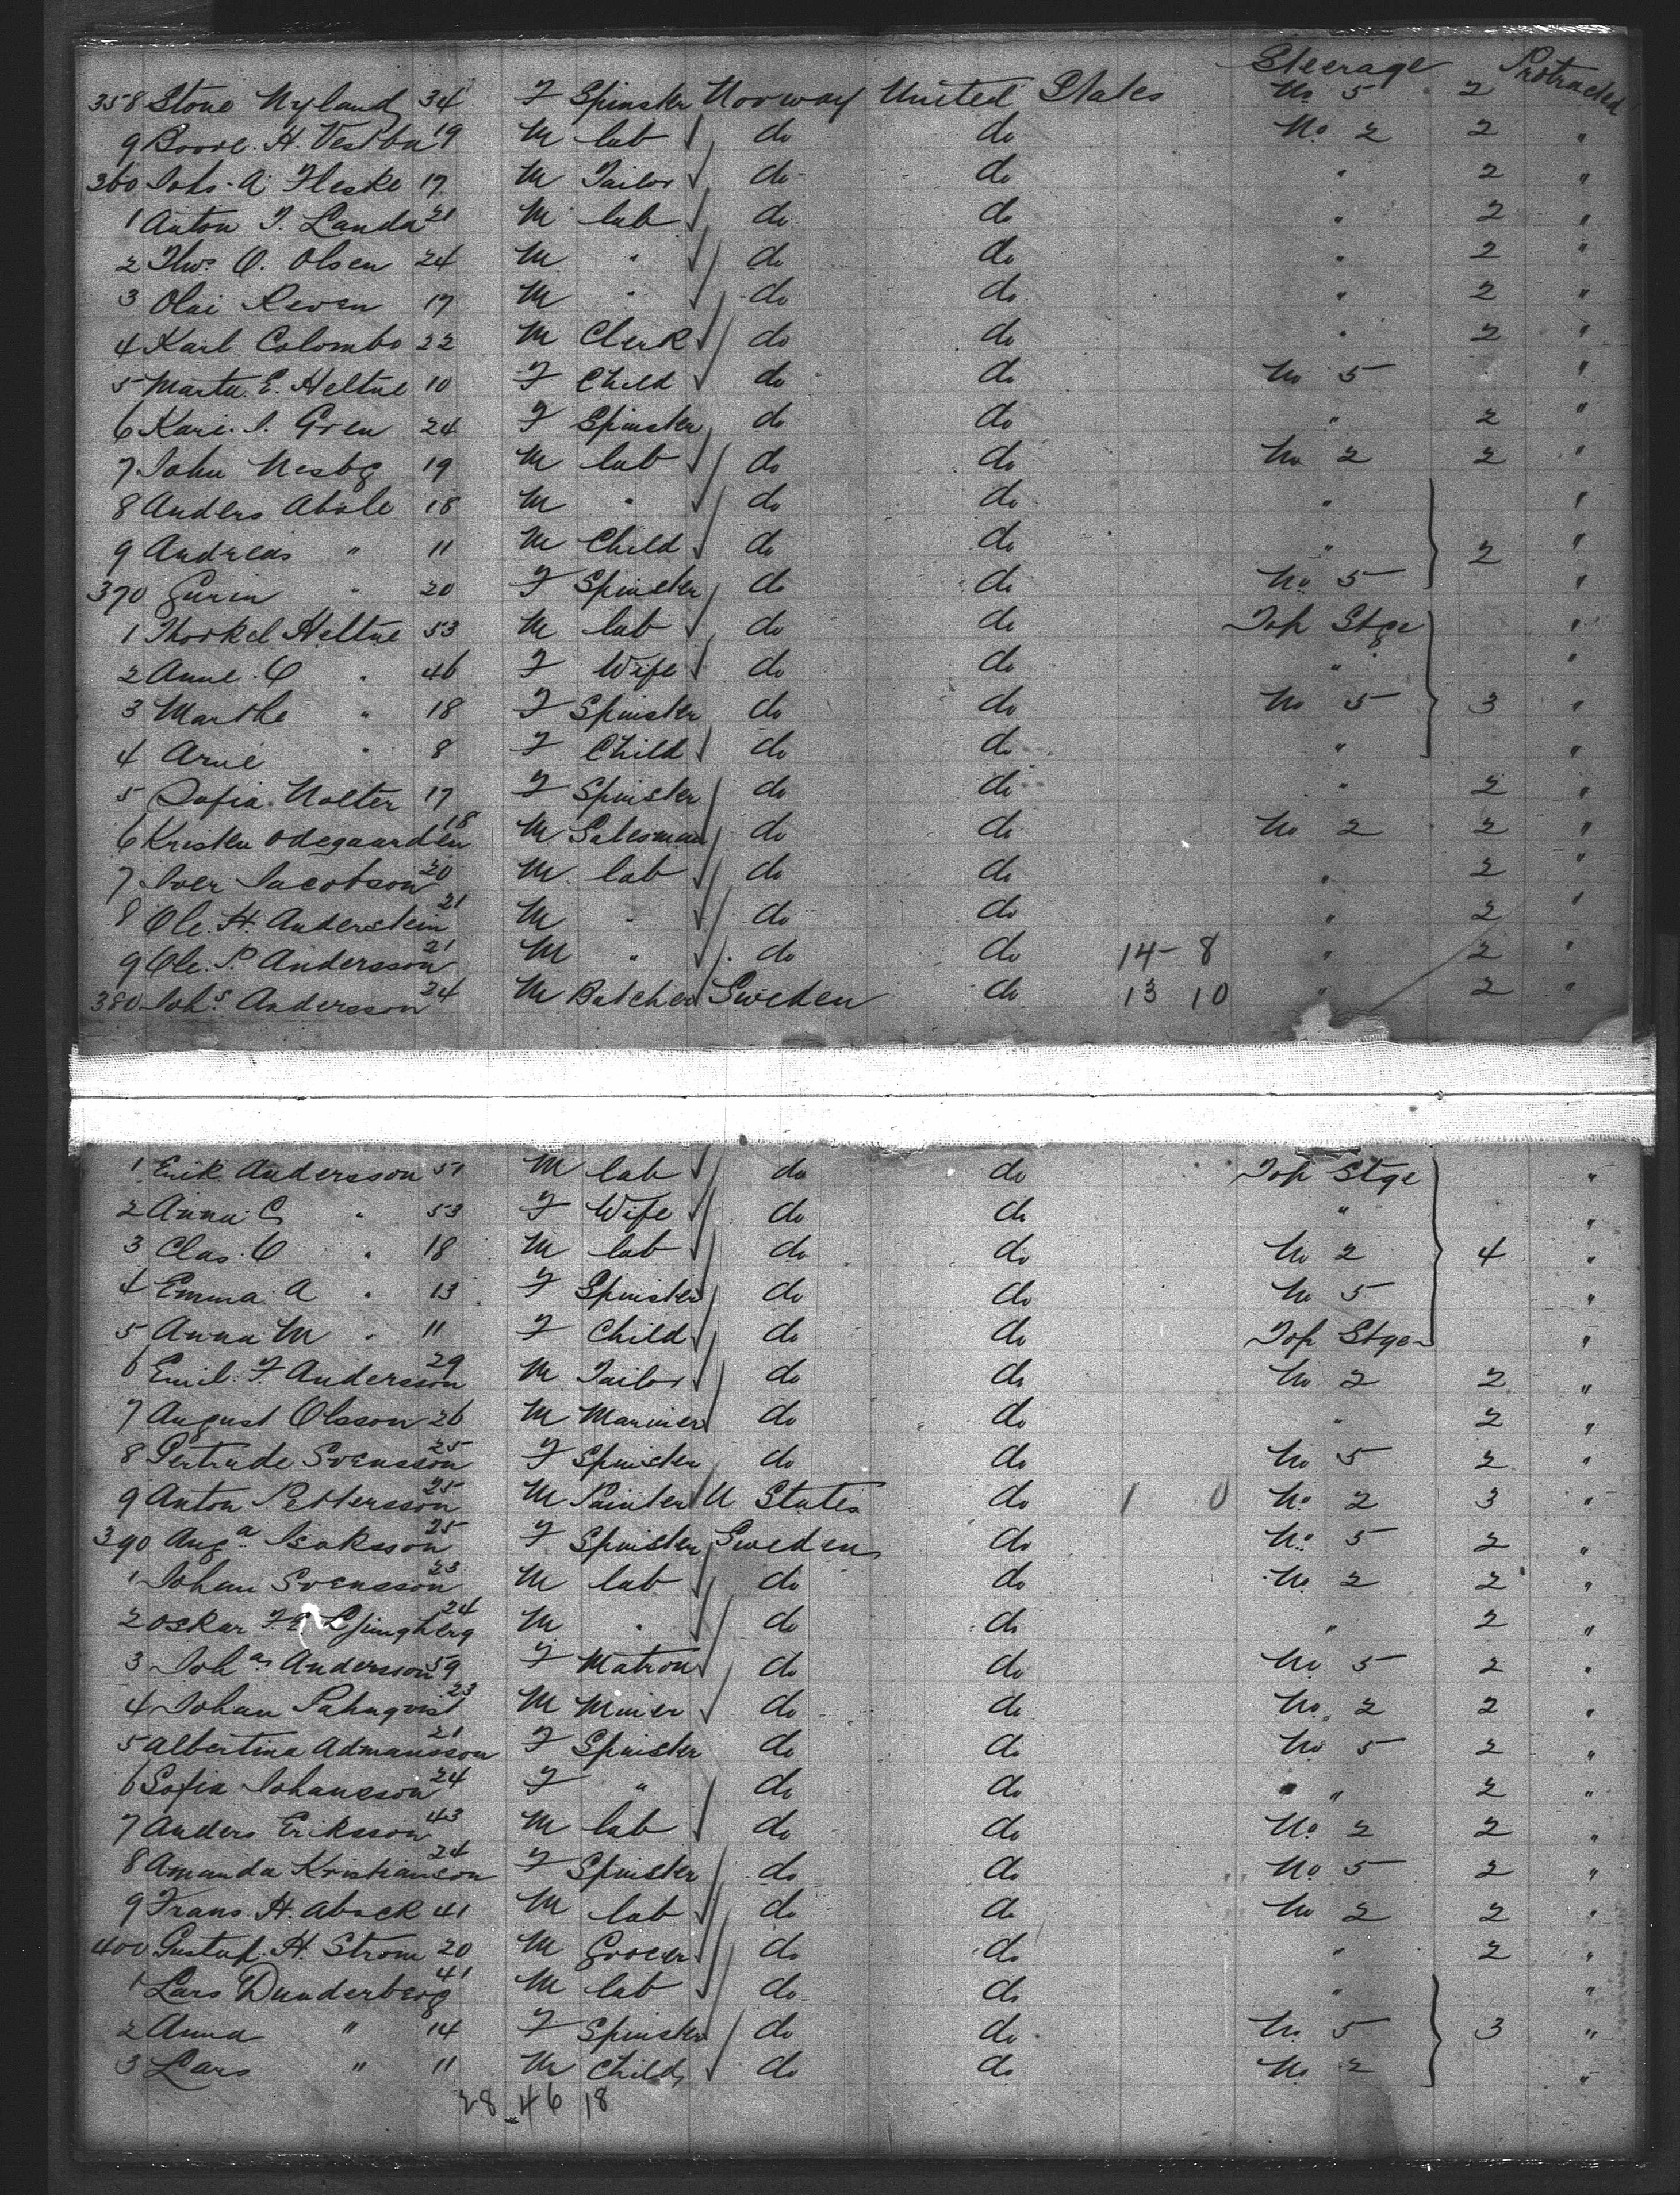 Steerage Protracted
358 Stone Nyland 34 F Spinster Norway United States No 5 2
9 H. Vestba 19 M lab do do No 2 2 "
360 Johs. A. Fleske 17 M Tailor do do " 2 "
1 Anton T. Landa 21 M lab do do " 2 "
2 Thos O. Olsen 24 M " do do " 2 "
3 Olai Reven 17 M " do do " 2 "
4 Karl Colombo 22 M Clerk do do " 2 "
5 Marta E. Heltne 10 F Child do do No 5 "
6 Kari. I. Gren 24 F Spinster do do " 2 "
7 John Nesby 19 M lab do do No 2 2 "
8 Anders Abole 18 M " do do " "
9 Andreas " 11 M Child do do " 2 "
370 Gurin " 20 F Spinster do do No 5 "
1 Thorkel Heltne 53 M lab do do Top Stge "
2 Anne O " 46 F Wife do do " "
3 Marthe " 18 F Spinster do do No 5 3 "
4 Arne " 8 F Child do do " "
5 Sofia Nolter 17 F Spinster do do " 2 "
6 Kristen Odegaarden 18 M Salesman do do No 2 2 "
7 Iver Jacobson 20 M lab do do " 2 "
8 Ole. H. Anderstein 21 M " do do " 2 "
9 Ole. P. Andersson 21 M " do do 14-8 " 2 "
380 Johs Andersson 24 M Butcher Sweden do 13 10 " 2 "
1 Erik Andersson 51 M lab do do Top Stge "
2 Anna C " 53 F Wife do do " "
3 Clas O " 18 M lab do do No 2 4 "
4 Emma A " 13 F Spinster do do No 5 "
5 Anna M " 11 F Child do do Top Stge "
6 Emil F. Andersson 29 M Tailor do do No 2 2 "
7 August Olsson 26 M Mariner do do " 2 "
8 Gertrude Svensson 25 F Spinster do do No 5 2 "
9 Anton Pettersson 25 M Painter U States do 1 0 No 2 3 "
390 Auga Isaksson 25 F Spinster Sweden do No 5 2 "
1 Johan Svensson 23 M lab do do No 2 2 "
2 Oskar F. E. Ljungberg 24 M " do do " 2 "
3 Joha Andersson 59 F Matron do do No 5 2 "
4 Johan Palmqvist 23 M Miner do do No 2 2 "
5 Albertina Admansson 21 F Spinster do do No 5 2 "
6 Sofia Johansson 24 F " do do " 2 "
7 Anders Eriksson 43 M lab do do No 2 2 "
8 Amanda Kristianson 24 F Spinster do do No 5 2 "
9 Frans. H. Aback 41 M lab do do No 2 2 "
400 Gustaf. H. Strom 20 M Grocer do do " 2 "
1 Lars Dunderberg 41 M lab do do " "
2 Anna " 14 F Spinster do do No 5 3 "
3 Lars " 11 M Child do do No 2 "
28 46 18